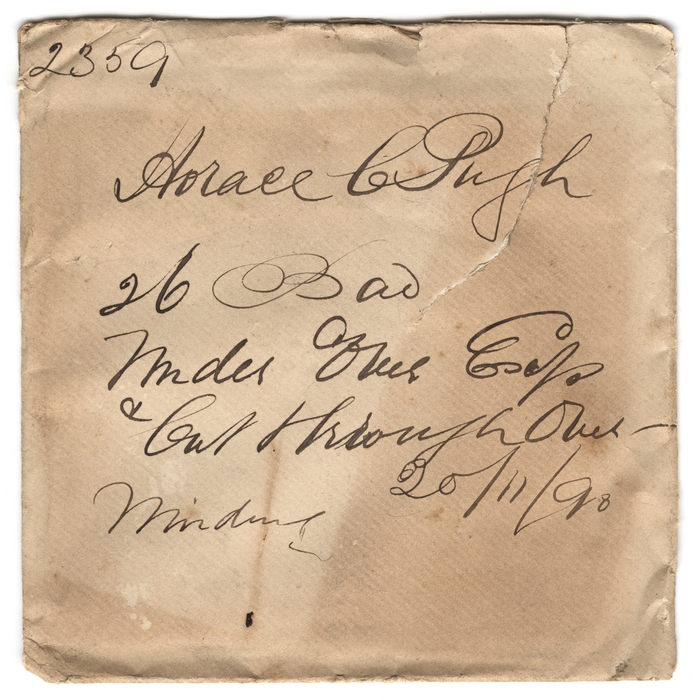 2359
Horace C Pugh
26 Bad
Under Over Cops
& Cut through Over-
Winding 20/11/90